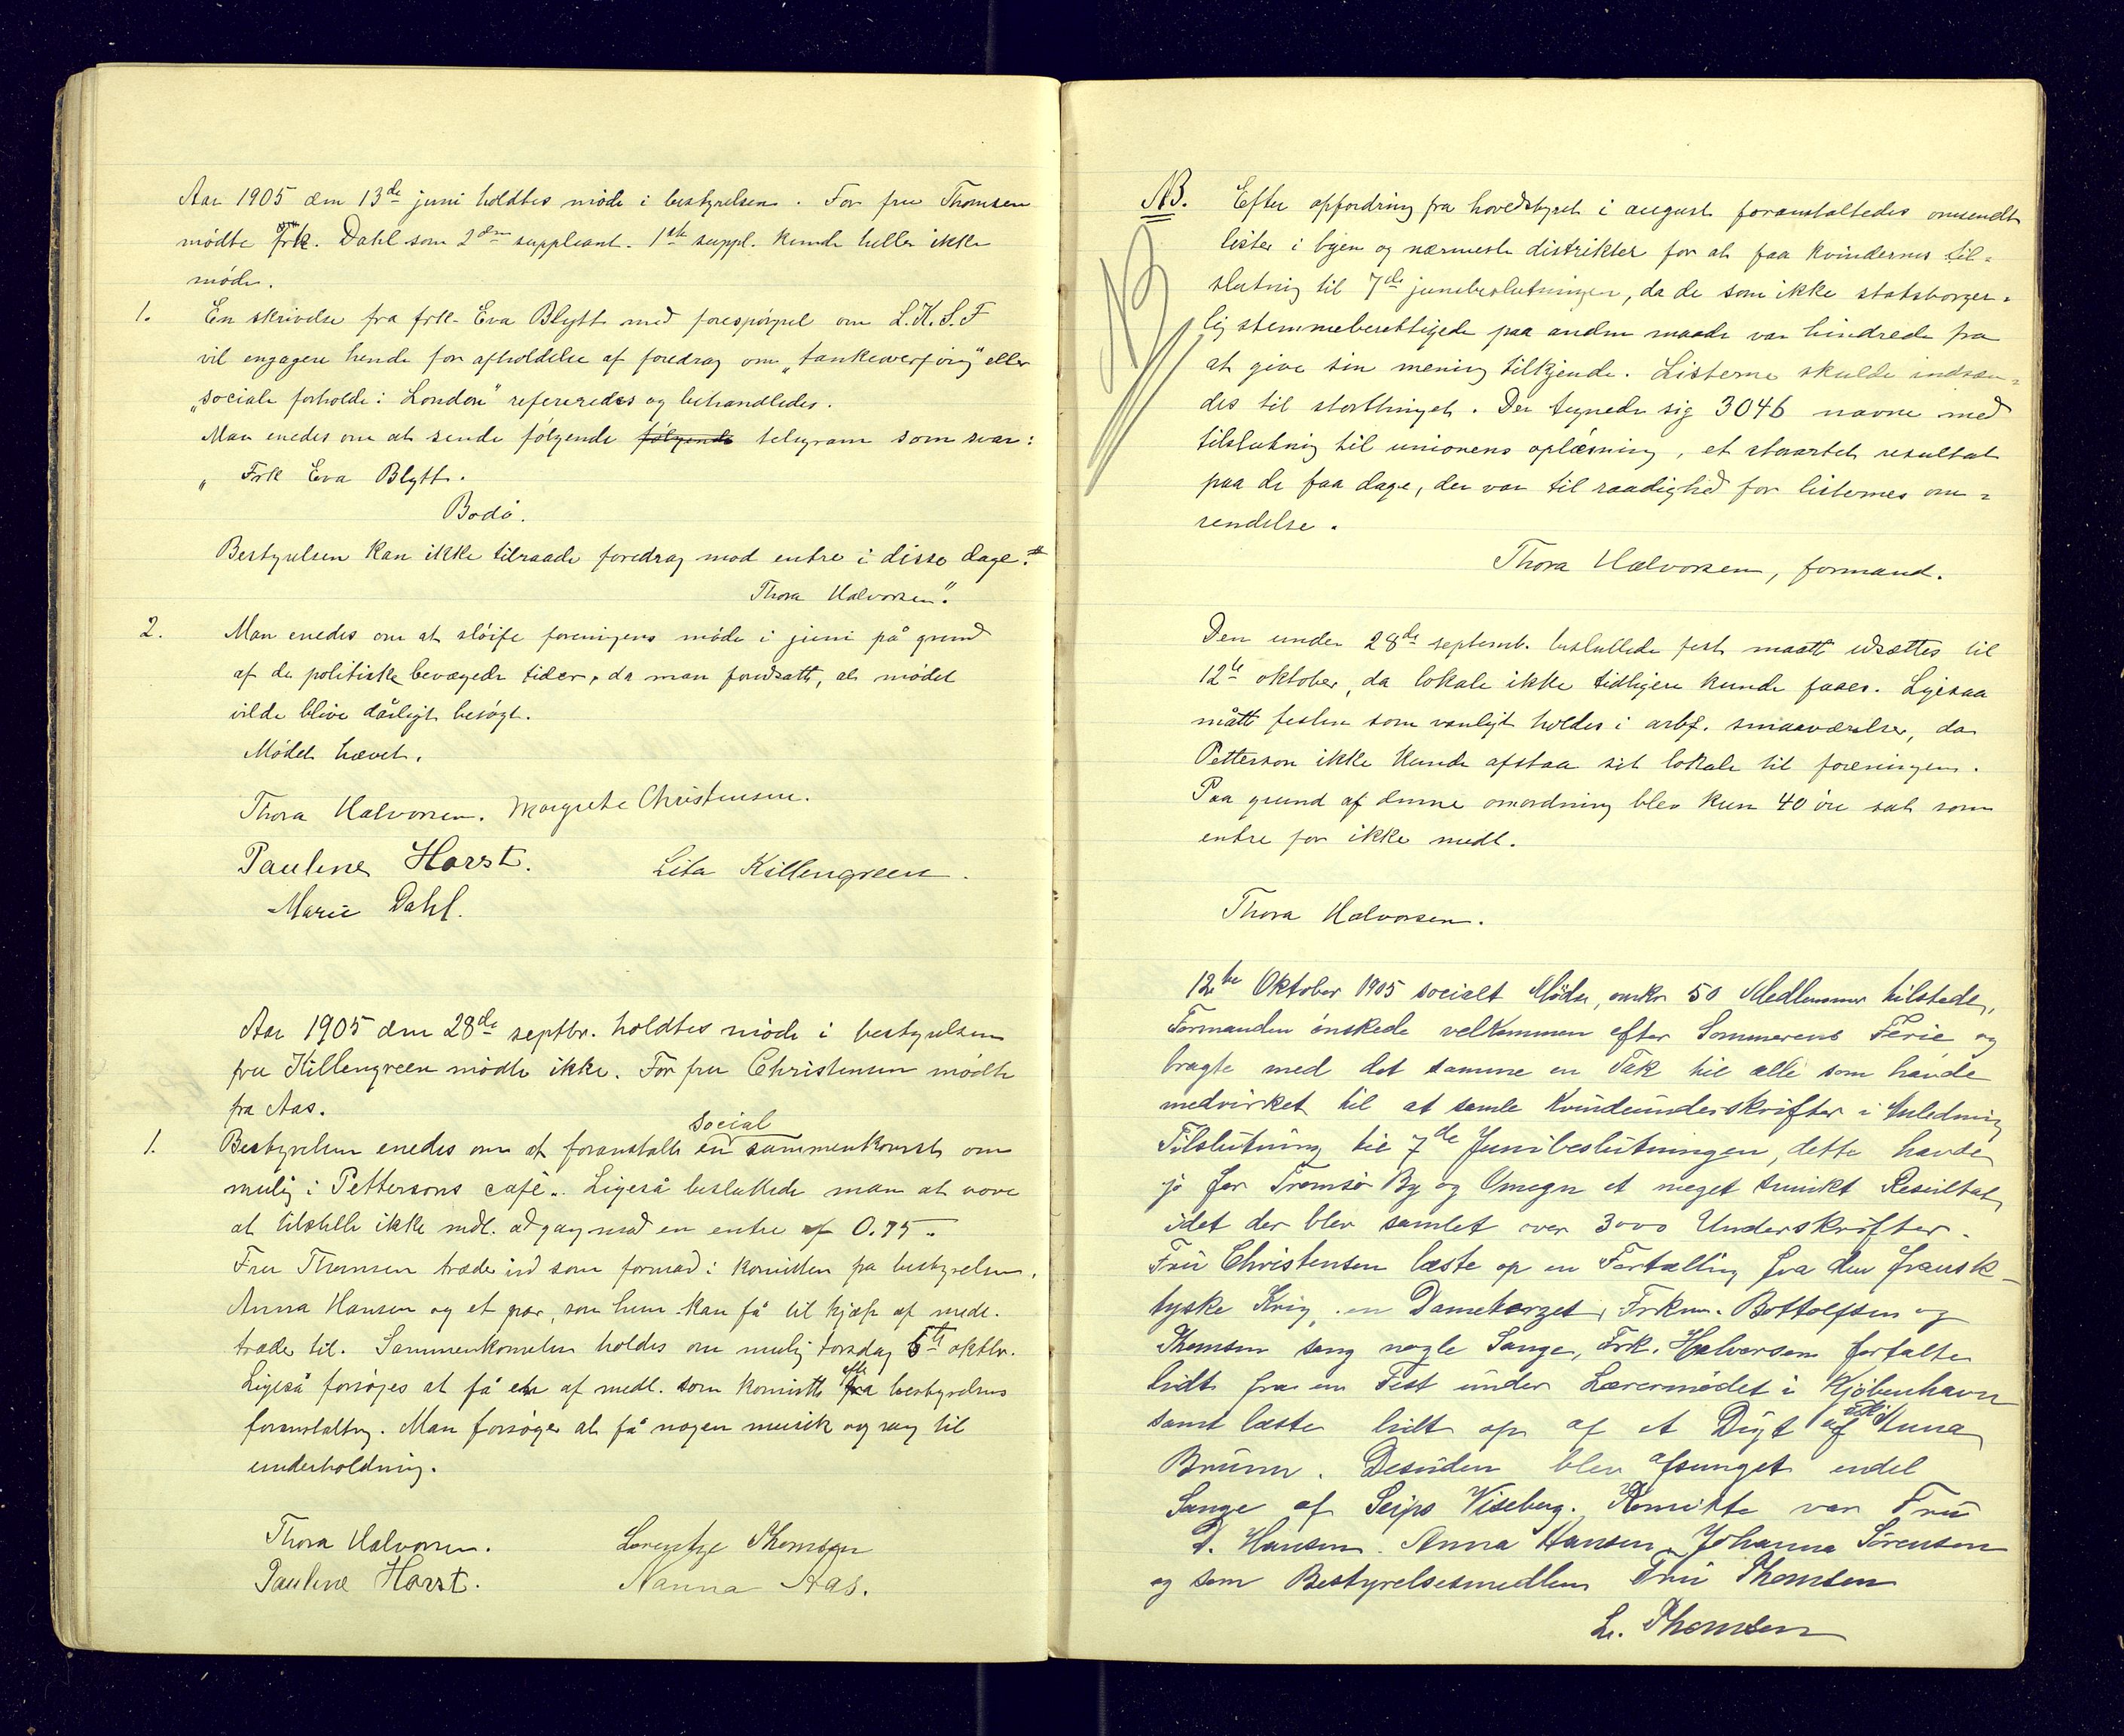 Aar 1905 den 13de juni holdtes møde i bestyrelsen. For fru Thomsen
mødte frk. Dahl som 2den suppleant. 1ste suppl. kunde heller ikke
møde.
1. En skrivelse fra frk. Eva Blytt med forespørgsel om L.K.S.F
vil engagere hende for afholdelse af foredrag om „tankeoverføring" eller
„sociale forholde i London" refereredes og behandledes.
Man enedes om at sende følgende følgende telegram som svar:
„ Frk Eva Blytt.
Bodø.
Bestyrelsen kan ikke tilraade foredrag mod entre i disse dage.
Thora Halvorsen."
2. Man enedes om at sløife foreningens møde i juni på grund
af de politiske bevægede tider, da man forudsatte, at mødet
vilde blive dårligt besøgt.
Mødet hævet.
Thora Halvorsen. Margrete Christensen.
Pauline Horst. Lita Killengreen.
Marie Dahl.
Aar 1905 den 28de septbr. holdtes møde i bestyrelsen
fru Killengreen mødte ikke. For fru Christensen mødte
fra Aas.
1. Bestyrelsen enedes om at foranstalte en social sammenkomst om
mulig i Pettersons café. Ligeså besluttede man at vove
at tilstille ikke mdl. adgang mod en entre af 0.75.
Fru Thomsen træder ind som formand i komiteen fra bestyrelsen,
Anna Hansen og et par, som hun kan få til hjælp af medl.
træder til. Sammenkomsten holdes om mulig torsdag 5te oktbr.
Ligeså forsøges at få en af medl. som komitte efter bestyrelsens
foranstaltng. Man forsøger at få nogen musik og sang til
underholdning.
Thora Halvorsen. Lorentze Thomsen
Pauline Horst. Nanna Aas.
NB. Efter opfordring fra hovedstyret i august foranstaltedes omsendt
lister i byen og nærmeste distrikter for at faa kvindernes til=
slutning til 7de junibeslutningen, da de som ikke statsborger=
lig stemmeberettigede paa anden maade var hindrede fra
at give sin mening tilkjende. Listerne skulde indsen=
des til storthinget. Der tegnede sig 3046 navne med
tilslutning til unionens opløsning, et storartet resultat
paa de faa dage, der var til raadighed for listernes om=
sendelse.
Thora Halvorsen, formand.
Den under 28de septemb. besluttede fest maatte udsættes til
12te oktober, da lokale ikke tidligere kunde faaes. Ligesaa
måtte festen som vanligt holdes i arbf. smaaværelser, da
Petterson ikke kunde afstaa sit lokale til foreningen.
Paa grund af denne omordning blev kun 40 øre sat som
entre for ikke medl.
Thora Halvorsen.
12te Oktober 1905 socialt Møde, omkr 50 Medlemmer tilstede,
Formanden ønskede velkommen efter Sommerens Ferie og
bragte med det samme en Tak til alle som havde
medvirket til at samle Kvindeunderskrifter i Anledning
Tilslutning til 7de Junibeslutningen, dette havde
jo for Tromsø By og Omegn et meget smukt Resultat,
idet der blev samlet over 3000 Underskrifter.
Fru Christensen læste op en Fortælling fra den fransk-
tyske Krig, en Dameterzet, Frknr. Bottolfsen og
Thomsen sang nogle Sange, Frk. Halvorsen fortalte
lidt fra en Fest under Lærermødet i Kjøbenhavn
samt læste lidt op af et Digt af Anna
Brunn. Desuden blev afsunget endel
Sange af Seips Visebog. Komitte var Fru
D. Hansen. Anna Hansen, Johanna Sørensen
og som Bestyrelsesmedlem Fru Thomsen
L. Thomsen